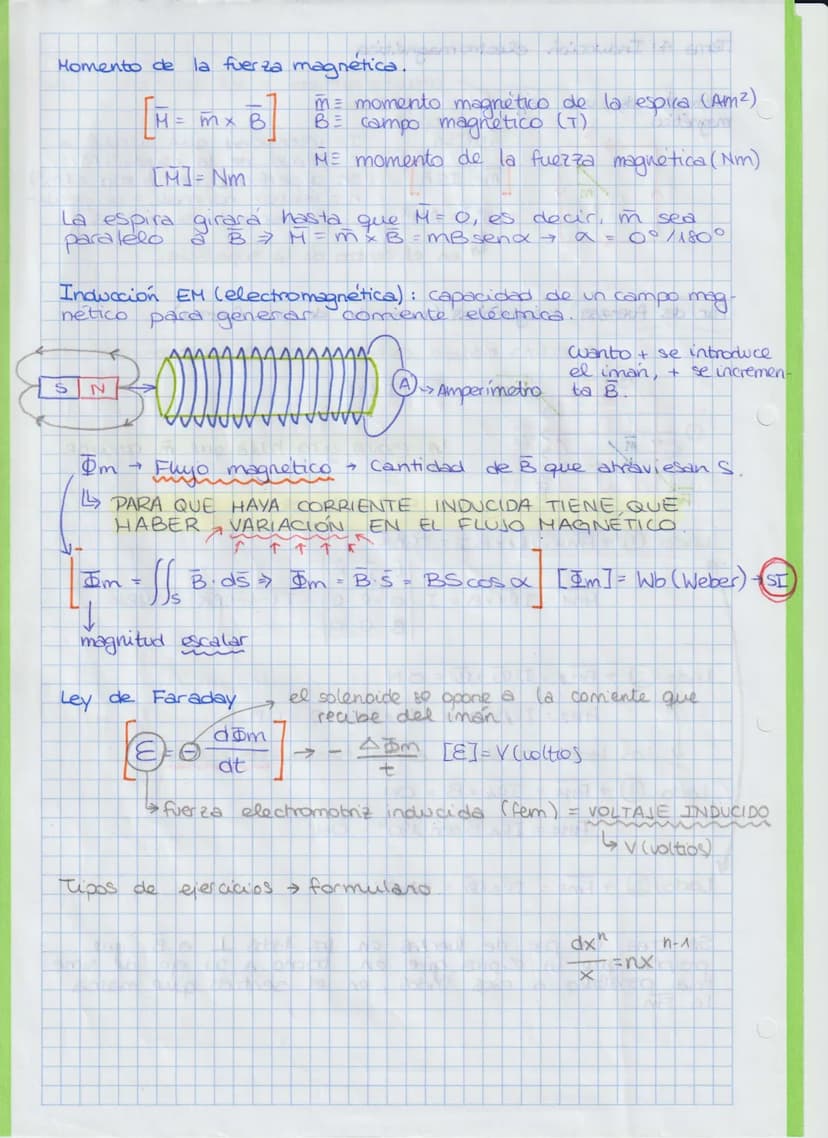 Momento de la fuerza magnética.
[M̄ = m̄ x B̄] m̄ ≡ momento magnético de la espira (Am²)
B̄ ≡ campo magnético (T)
M̄ ≡ momento de la fuezza magnética (Nm)
[M̄] = Nm
La espira girará hasta que M̄ = 0, es decir, m̄ sea
paralelo a B̄ ⇒ M̄ = m̄ x B̄ = mBsenα → α = 0°/180°
Inducción EM (electromagnética): capacidad de un campo mag-
nético para generar corriente eléctrica.
S N
A → Amperímetro
Cuanto + se introduce
el imán, + se incremen-
ta B̄.
Φm → Flujo magnético → Cantidad de B̄ que atraviesan S.
↳ PARA QUE HAYA CORRIENTE INDUCIDA TIENE QUE
HABER → VARIACIÓN EN EL FLUJO MAGNÉTICO
[Φm = ∬s B̄ · ds̄ ⇒ Φm = B̄ · s̄ = BS cos α] [Φm] = Wb (Weber) → SI
magnitud escalar
Ley de Faraday → el solenoide se opone a la corriente que
recibe del imán
[ε = - dΦm/dt] → - ΔΦm/t [ε] = V (voltios
→ fuerza electromotriz inducida (fem) = VOLTAJE INDUCIDO
↳ V (voltios)
Tipos de ejercicios → formulario
dxⁿ/x = nxⁿ⁻¹